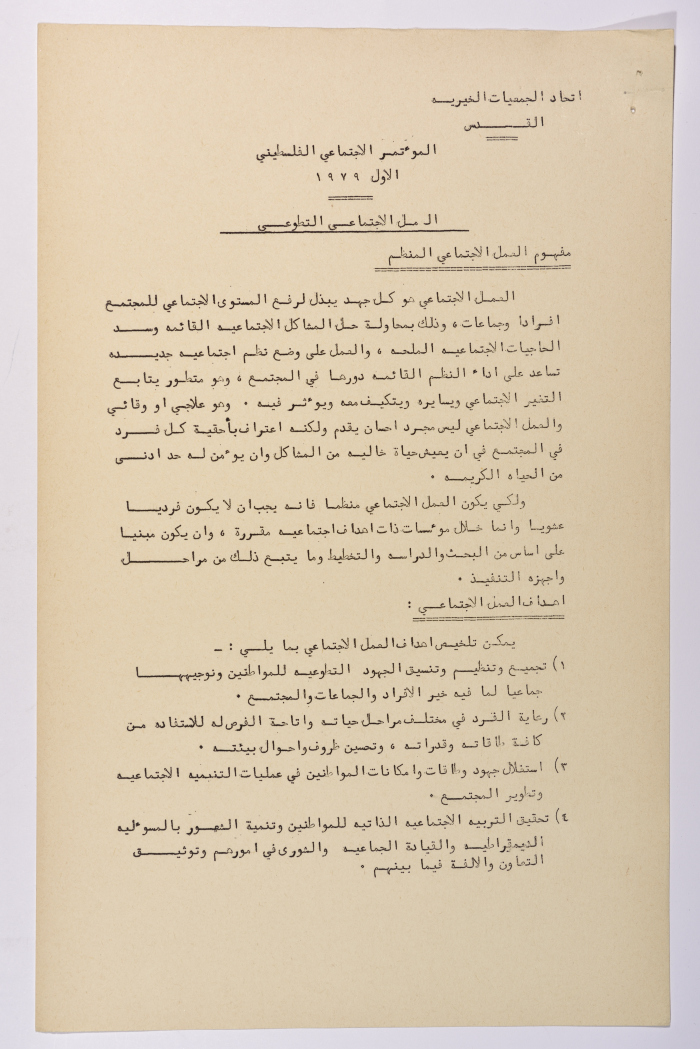 اتحاد الجمعيات الخيريه
القدس
الموءتمر الاجتماعي الفلسطيني
الاول ١٩٧٩
العمل الاجتماعي التطوعي
مفهوم العمل الاجتماعي المنظم
العمل الاجتماعي هو كل جهد يبذل لرفع المستوى الاجتماعي للمجتمع
افرادا وجماعات ، وذلك بمحاولة حل المشاكل الاجتماعيه القائمه وسد
الحاجيات الاجتماعيه الملحه ، والعمل على وضع نظم اجتماعيه جديده
تساعد على اداء النظم القائمه دورها في المجتمع ، وهو متطور يتابع
التغير الاجتماعي ويسايره ويتكيف معه ويوءثر فيه . وهو علاجي او وقائي
والعمل الاجتماعي ليس مجرد احسان يقدم ولكنه اعتراف بأحقية كل فرد
في المجتمع في ان يعيش حياة خاليه من المشاكل وان يوءمن له حد ادنى
من الحياه الكريمه .
ولكي يكون العمل الاجتماعي منظما فانه يجب ان لا يكون فرديا
عشويا وانما خلال موءسسات ذات اهداف اجتماعيه مقررة ، وان يكون مبنيا
على اساس من البحث والدراسه والتخطيط وما يتبع ذلك من مراحل
واجهزه التنفيذ .
اهداف العمل الاجتماعي :
يمكن تلخيص اهداف العمل الاجتماعي بما يلي : ـ
١) تجميع وتنظيم وتنسيق الجهود التطوعيه للمواطنين وتوجيهها
جماعيا لما فيه خير الافراد والجماعات والمجتمع .
٢) رعاية الفرد في مختلف مراحل حياته واتاحة الفرص له للاستفاده من
كافة طاقاته وقدراته ، وتحسين ظروف واحوال بيئته .
٣) استغلال جهود وطاقات وامكانات المواطنين في عمليات التنميه الاجتماعيه
وتطوير المجتمع .
٤) تحقيق التربيه الاجتماعيه الذاتيه للمواطنين وتنمية الشعور بالمسوءليه
الديمقراطيه والقيادة الجماعيه والشورى في امورهم وتوثيق
التعاون والالفة فيما بينهم .